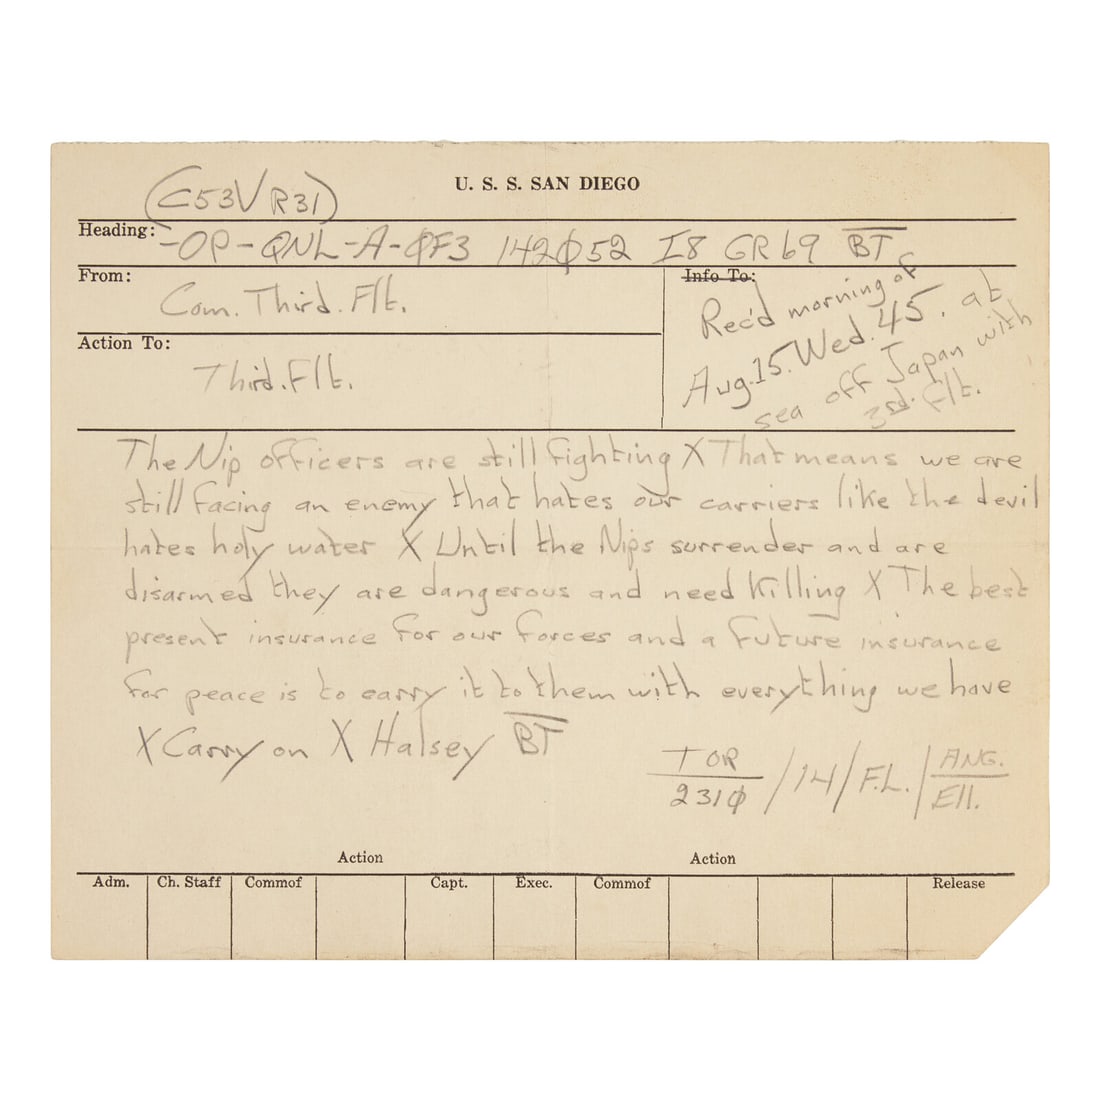 U. S. S. SAN DIEGO
(C53V R31)
Heading: -OP-QNL-A-ØF3 142Ø52 I8 GR69 BT
From:
Com. Third. Flt.
Info To:
Rec'd morning of
Aug. 15. Wed. 45. at
sea off Japan with
3rd. flt.
Action To:
Third. Flt.
The Nip officers are still fighting X That means we are
still facing an enemy that hates our carriers like the devil
hates holy water X Until the Nips surrender and are
disarmed they are dangerous and need killing X The best
present insurance for our forces and a future insurance
for peace is to carry it to them with everything we have
X Carry on X Halsey BT
TOR
231Ø /14/F.L./ ANG.
Ell.
Action Action
Adm. Ch. Staff Commof Capt. Exec. Commof Release